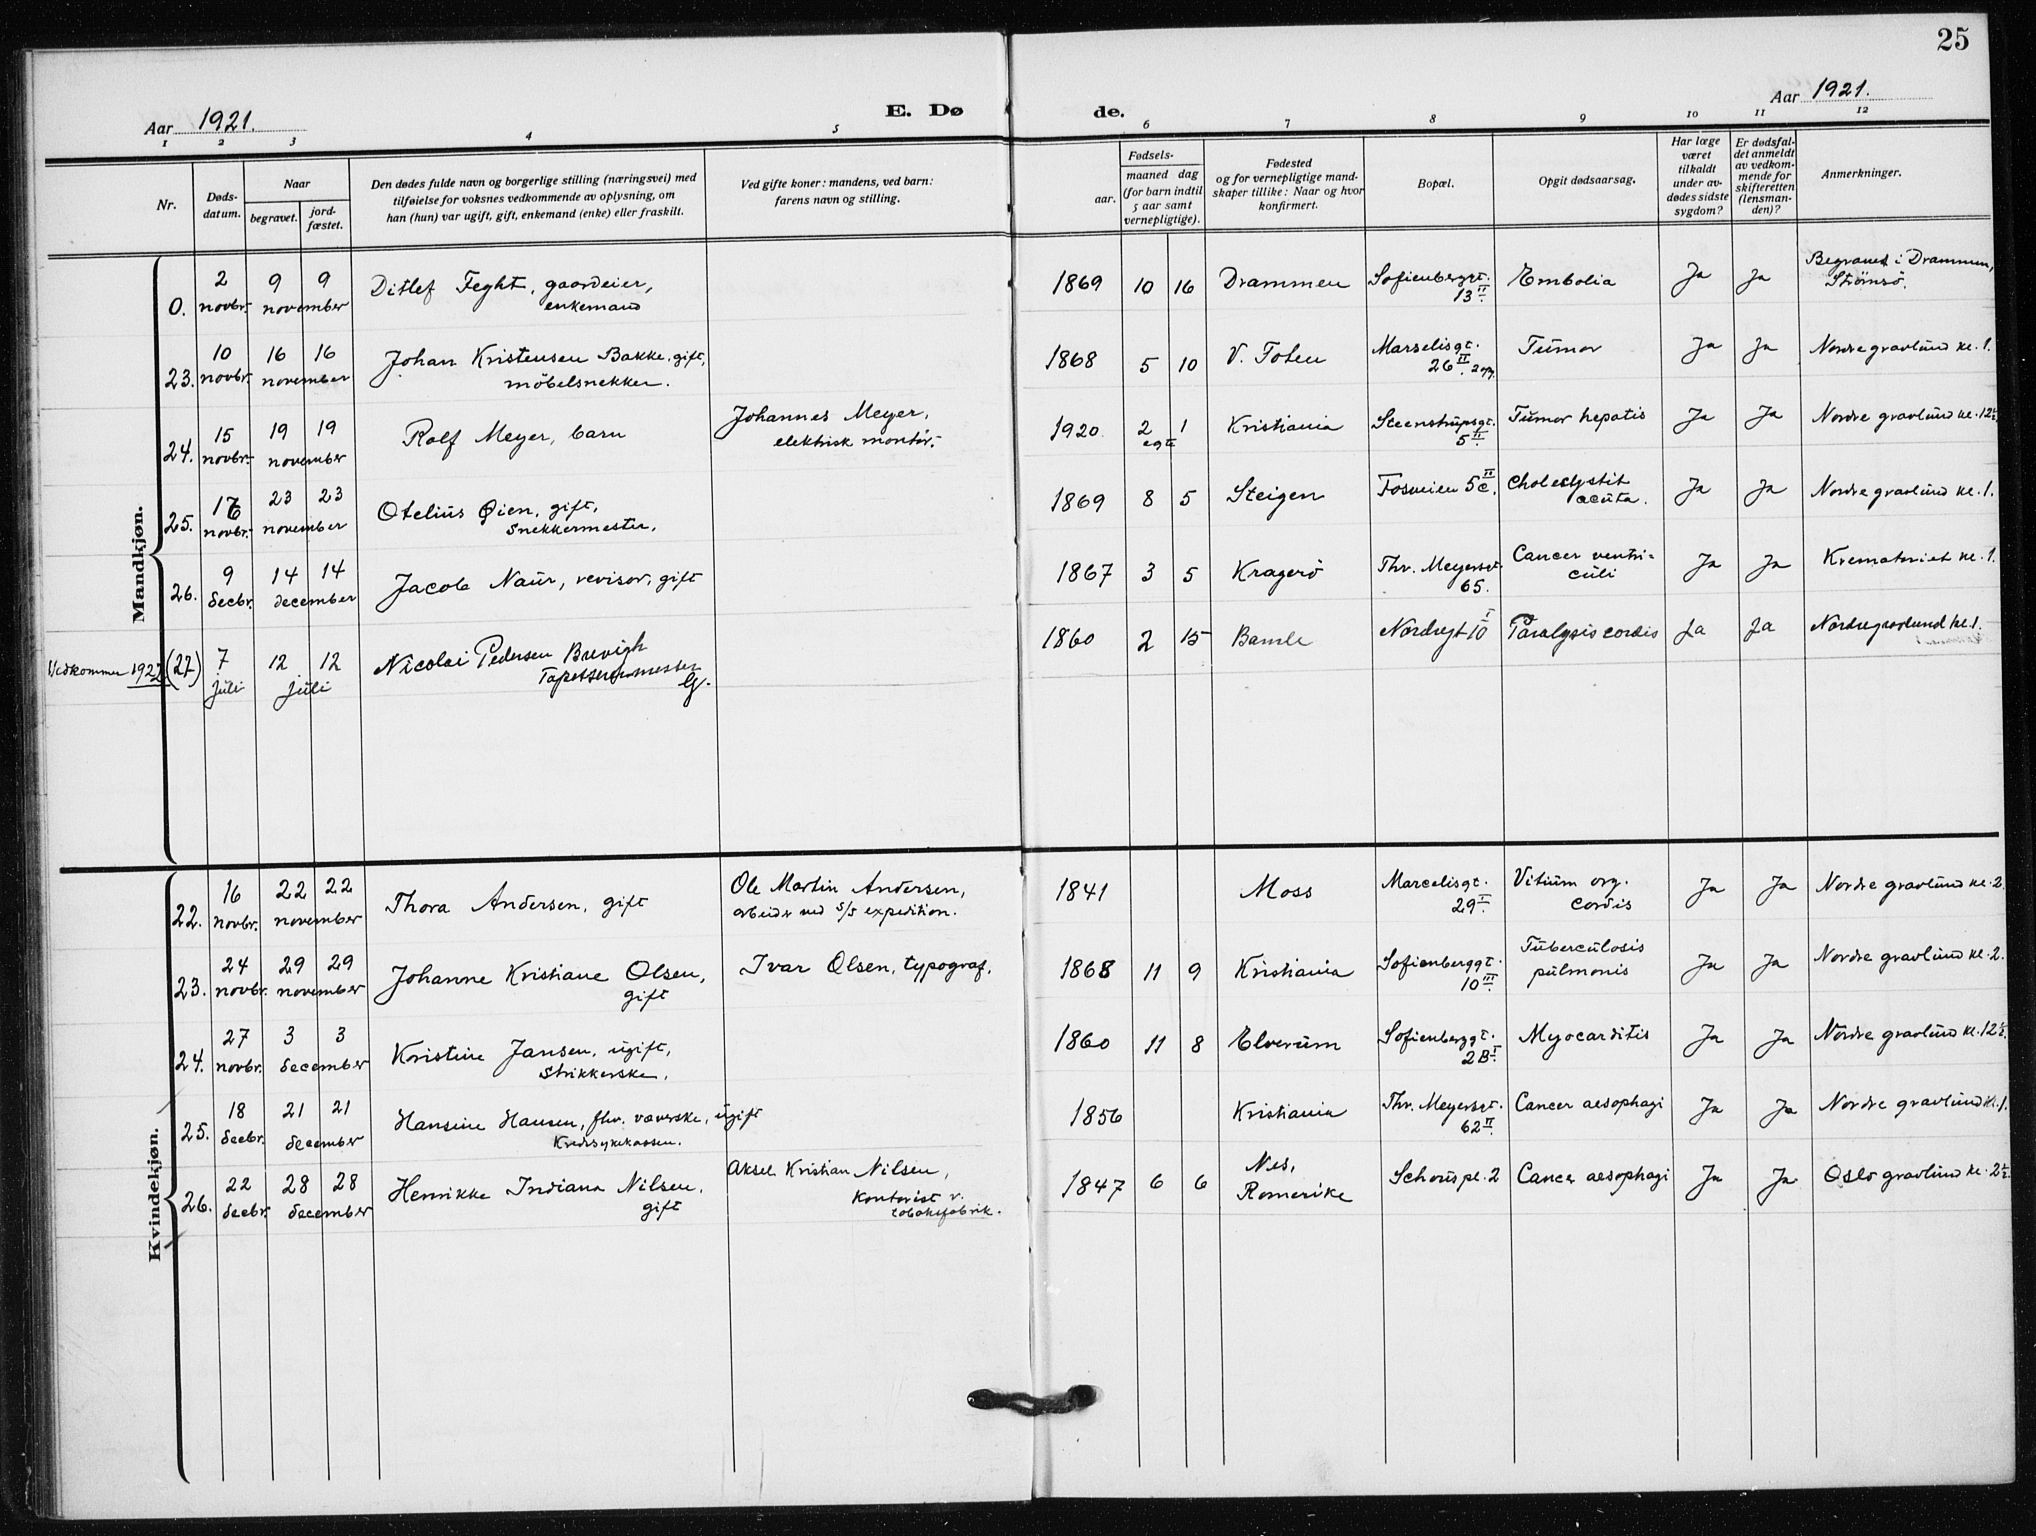 25
Aar 1921.
E. Døde.
Aar 1921.
1 2 3 4 5 6 7 8 9 10 11 12
Nr.
Døds-
datum.
Naar
begravet.
jord-
fæstet.
Den dødes fulde navn og borgerlige stilling (næringsvei) med
tilføielse for voksnes vedkommende av oplysning, om
han (hun) var ugift, gift, enkemand (enke) eller fraskilt.
Ved gifte koner: mandens, ved barn:
farens navn og stilling.
Fødsels-
aar.
maaned dag
(for barn indtil
5 aar samt
vernepligtige).
Fødested
og for vernepligtige mand-
skaper tillike: Naar og hvor
konfirmert.
Bopæl.
Opgit dødsaarsag.
Har læge
været
tilkaldt
under av-
dødes sidste
sygdom?
Er dødsfal-
det anmeldt
av vedkom-
mende for
skifteretten
(lensman-
den)?
Anmerkninger.
Mandkjøn.
0. 2 novbr. 9 9 november Ditlef Feght, gaardeier,
enkemand
1869 10 16 Drammen Sofienberggt.
13 II. Embolia Ja Ja Begravet i Drammen,
Strømsö.
23. 10 novbr. 16 16 november Johan Kristensen Bakke, gift,
möbelsnekker.
1868 5 10 V. Toten Marselisgt.
26 II. 2 opg. Tumor Ja Ja Nordre gravlund kl. 1.
24. 15 novbr. 19 19 november Rolf Meyer, barn
Johannes Meyer,
elektrisk montör.
1920 2 1 egte Kristiania Steenstrupsgt.
5 II. Tumor hepatis Ja Ja Nordre gravlund kl. 12½
25. 16 novbr. 23 23 november Otelius Øien, gift,
Snekkermester.
1869 8 5 Steigen Fosveien 5c II. Cholecystit
acuta. Ja Ja Nordre gravlund kl. 1.
26. 9 decbr. 14 14 december Jacob Naur, revisor, gift
1867 3 5 Kragerö Thv. Meyersgt.
65. Cancer ventri-
culi Ja Ja Krematoriet kl. 1.
Vedkommer 1922 (27) 7 juli 12 12 juli Nicolai Pedersen Brevigh
Tapetserermester
G.
1860 2 15 Bamle Nordregt 10 I Paralysis cordis Ja Ja Nordre gravlund kl. 1.
Kvindekjøn.
22. 16 novbr. 22 22 november Thora Andersen, gift
Ole Martin Andersen,
arbeider ved S/S expedition.
1841 Moss Marcelisgt.
29 I. Vitium org.
Cordis Ja Ja Nordre gravlund kl. 2.
23. 24 novbr. 29 29 november Johanne Kristiane Olsen,
gift
Ivar Olsen, typograf.
1868 11 9 Kristiania Sofienberggt.
10 III. Tuberculosis
pulmonis Ja Ja Nordre gravlund kl. 2.
24. 27 novbr. 3 3 december Kristine Jansen, ugift,
Strikkerske.
1860 11 8 Elverum Sofienberggt.
2 B I. Myocarditis Ja Ja Nordre gravlund kl. 12½.
25. 18 decbr. 21 21 december Hansine Hansen, fhv. væverske, ugift
Kredssykekassen.
1856 Kristiania Thv. Meyersgt.
62 II. Cancer aesophagi Ja Ja Nordre gravlund kl. 1.
26. 22 decbr. 28 28 december Henrikke Indiana Nilsen,
gift
Aksel Kristian Nilsen,
Kontorist v.
tobaksfabrik.
1847 6 6 Nes,
Romerike Schous pl. 2 Cancer aesophagi Ja Ja Oslo gravlund kl. 2½.